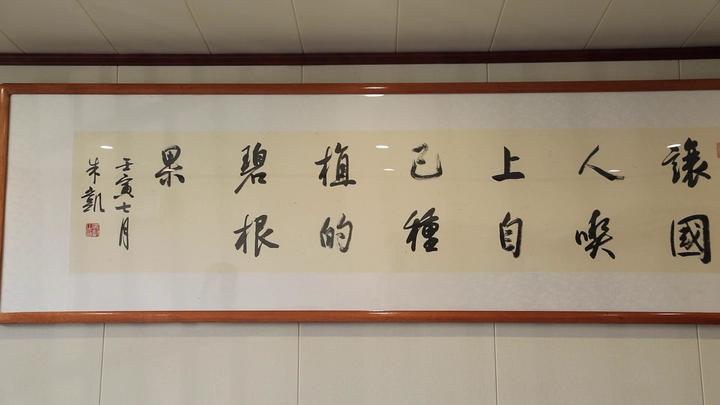 讓國
人喫
上自
己種
植的
碧根
果
壬寅七月
朱凱